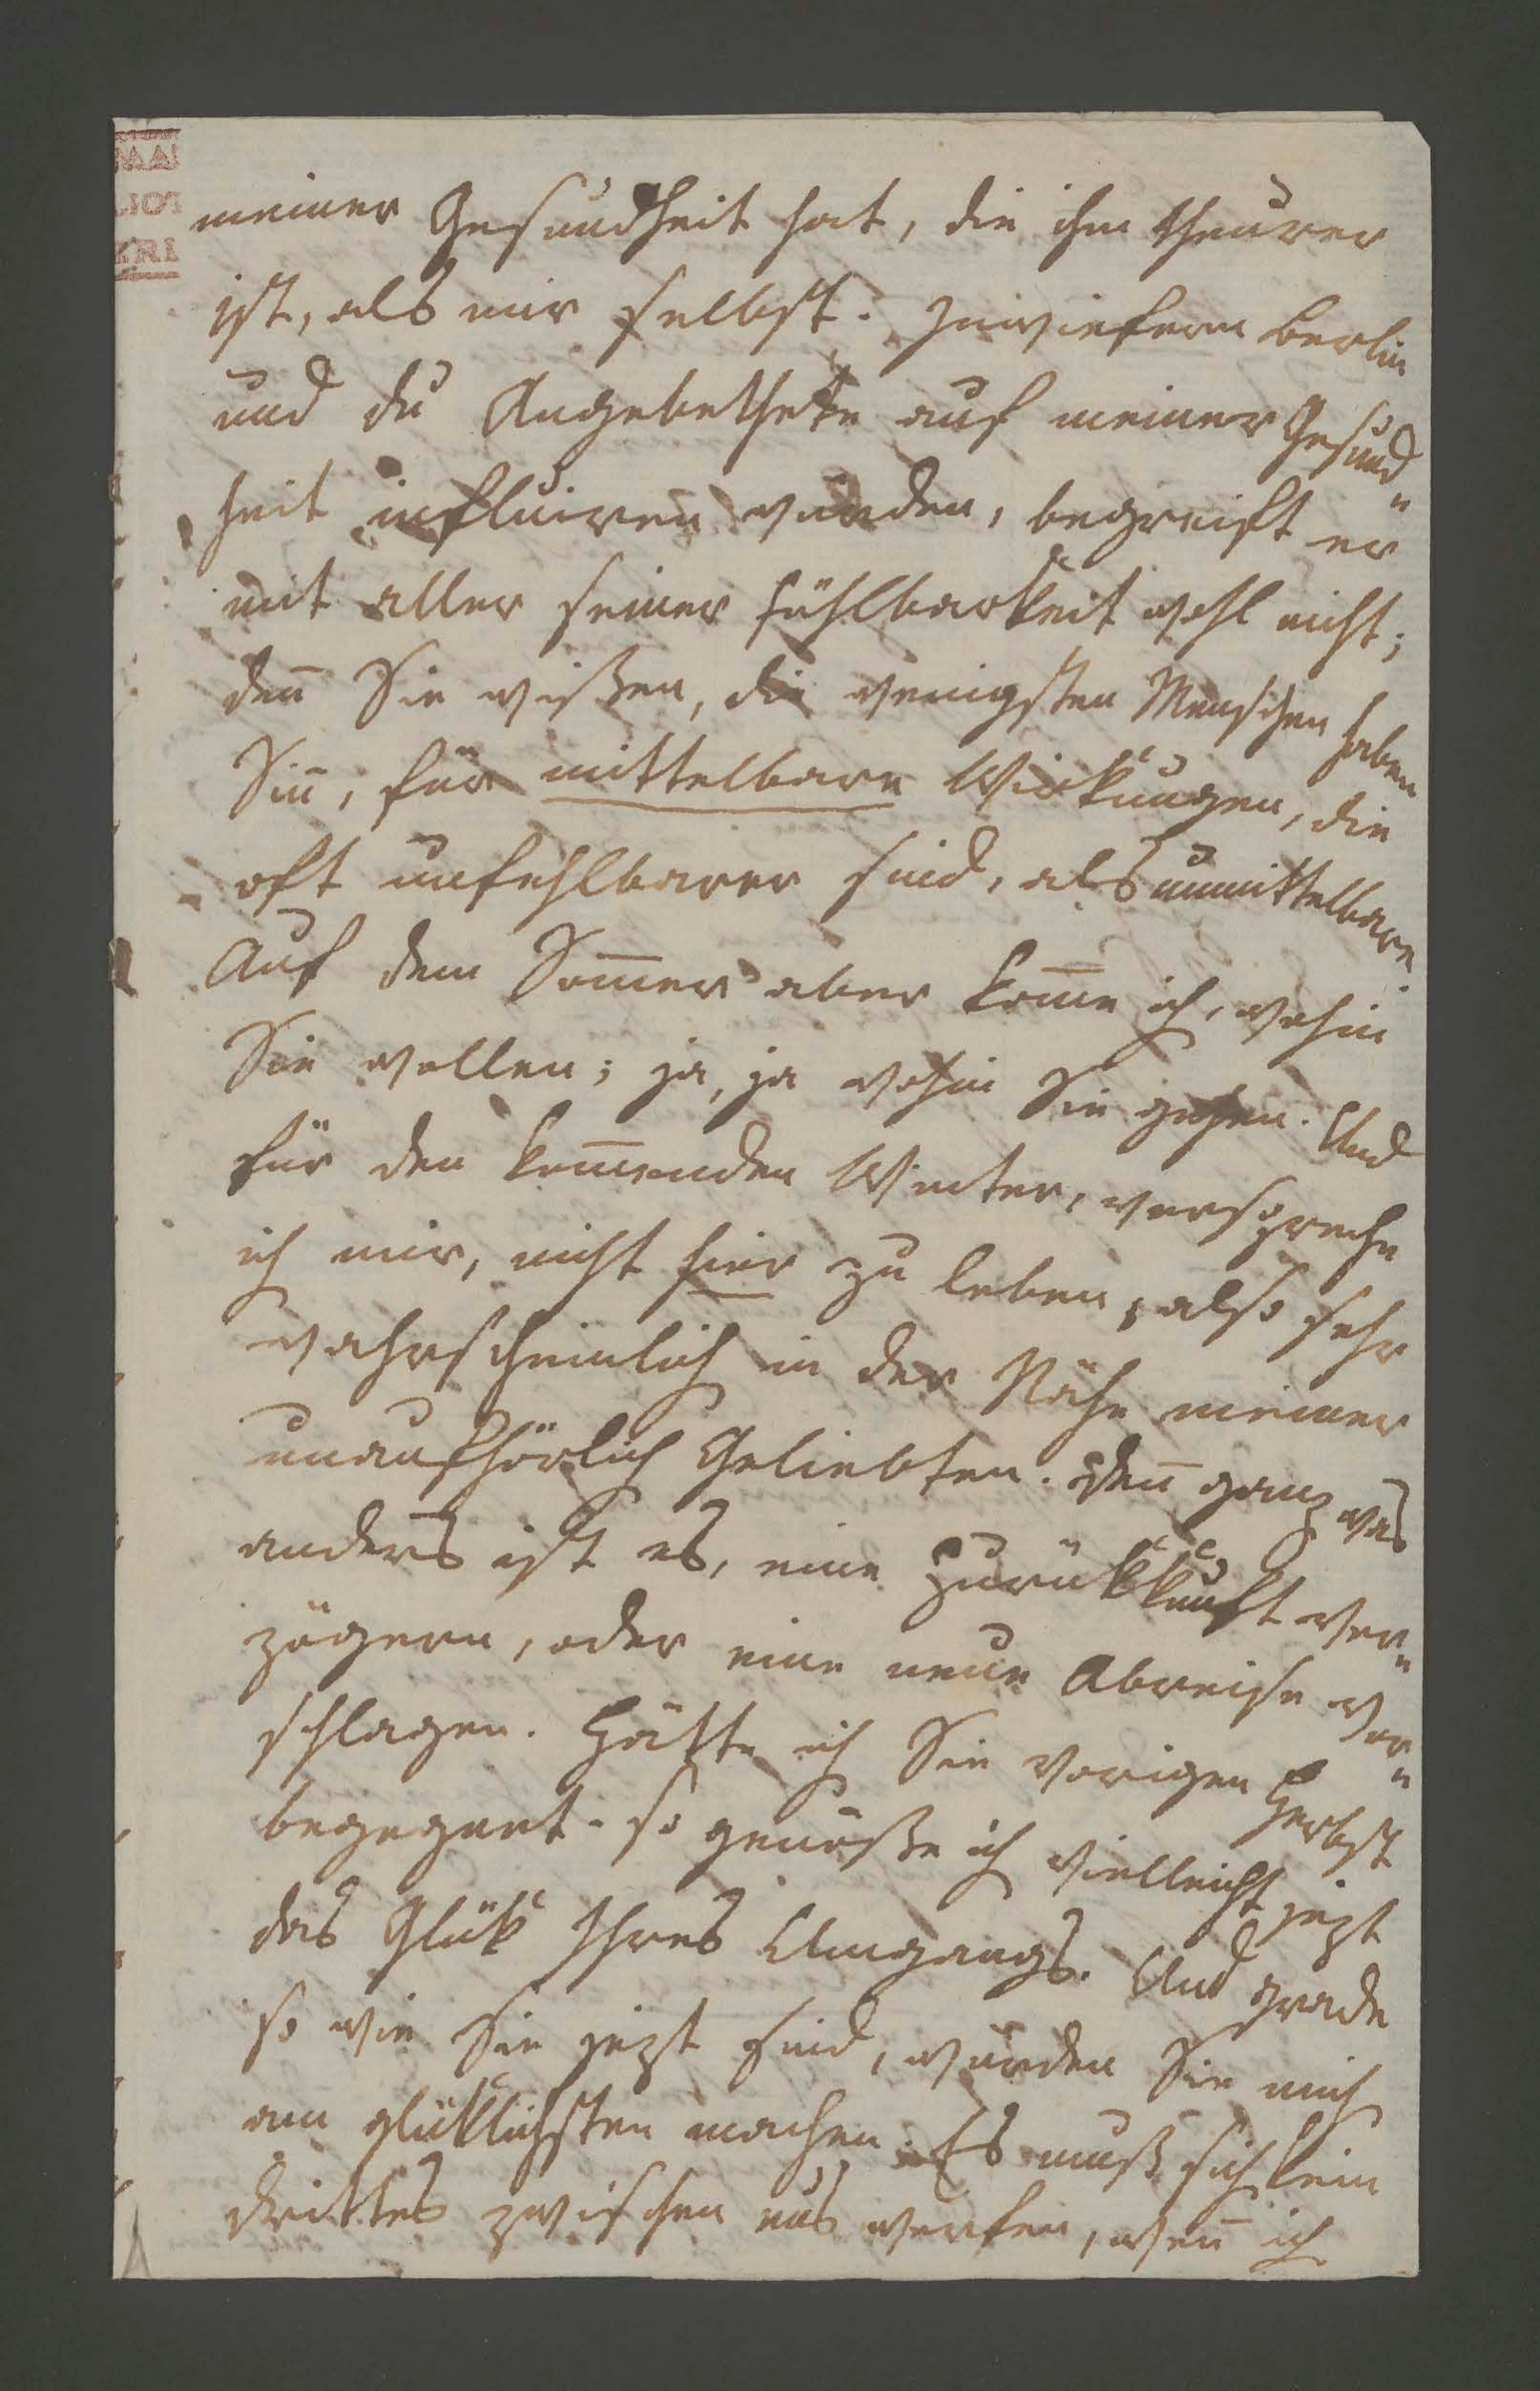 meiner Gesundheit hat, die ihm theurer
ist, als mir selbst. Inwiefern Berlin
und du Angebethete auf meiner Gesund-
heit influiren würden, begreift er
mit aller seiner Fühlbarkeit wohl nicht;
deñ Sie wißen, die wenigsten Menschen haben
Siñ, für mittelbare Wirkungen, die
oft unfehlbarer sind, als unmittelbare.
Auf dem Som̃er aber kom̃e ich, wohin
Sie wollen; ja, ja wohin Sie gehen. Und
für den kom̃enden Winter, verspreche
ich mir, nicht hier zu leben, also sehr
wahrscheinlich in der Nähe meiner
unaufhörlich Geliebten. Deñ ganz was
anders ist es, eine Zurükkunft ver-
zögern, oder eine neue Abreise vor-
schlagen. Hätte ich Sie vorigen Herbst
begegnet - so genöße ich vielleicht jezt
das Glük Ihres Umgangs. Und grade
so wie Sie jezt sind, würden Sie mich
am glüklichsten machen. Es muß sich kein
drittes zwischen uns werfen, weñ ich